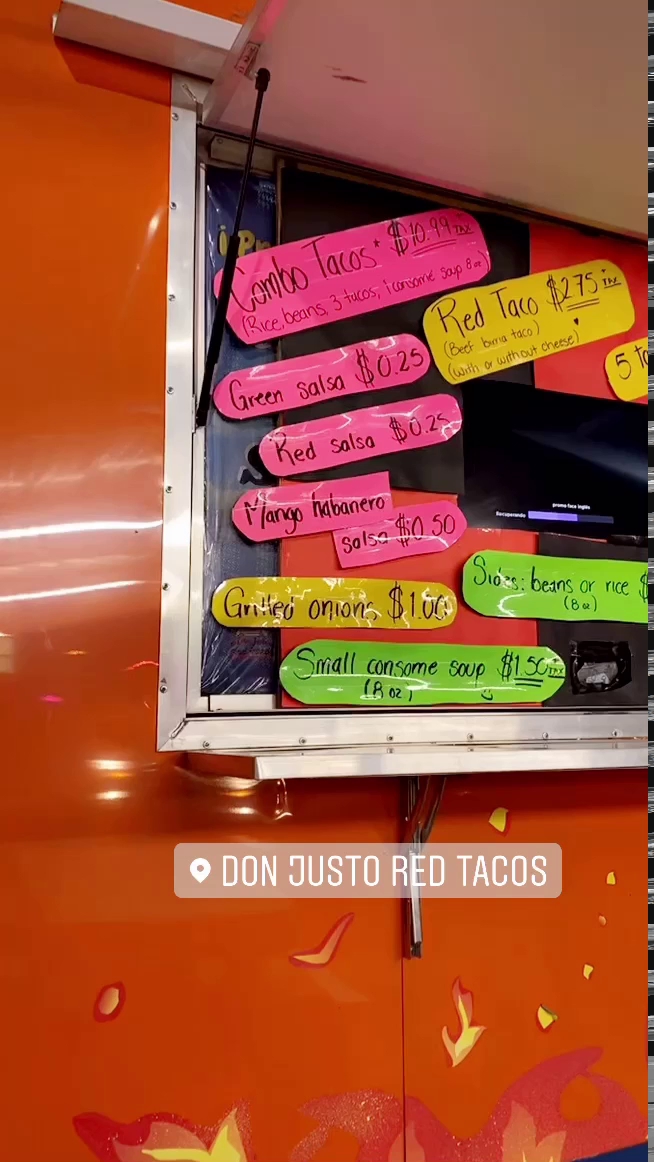 Combo Tacos* $10.99 TAX
(Rice, beans, 3 tacos, 1 consome soup 8oz)
Red Taco $2.75* TAX
(Beef birria taco)
(with or without cheese)
5 ta
Green salsa $0.25
Red salsa $0.25
Mango habanero
salsa $0.50
Recuperando
Sides: beans or rice $
(8 oz)
Grilled onions $1.00
Small consome soup $1.50 TAX
(8 oz)
DON JUSTO RED TACOS